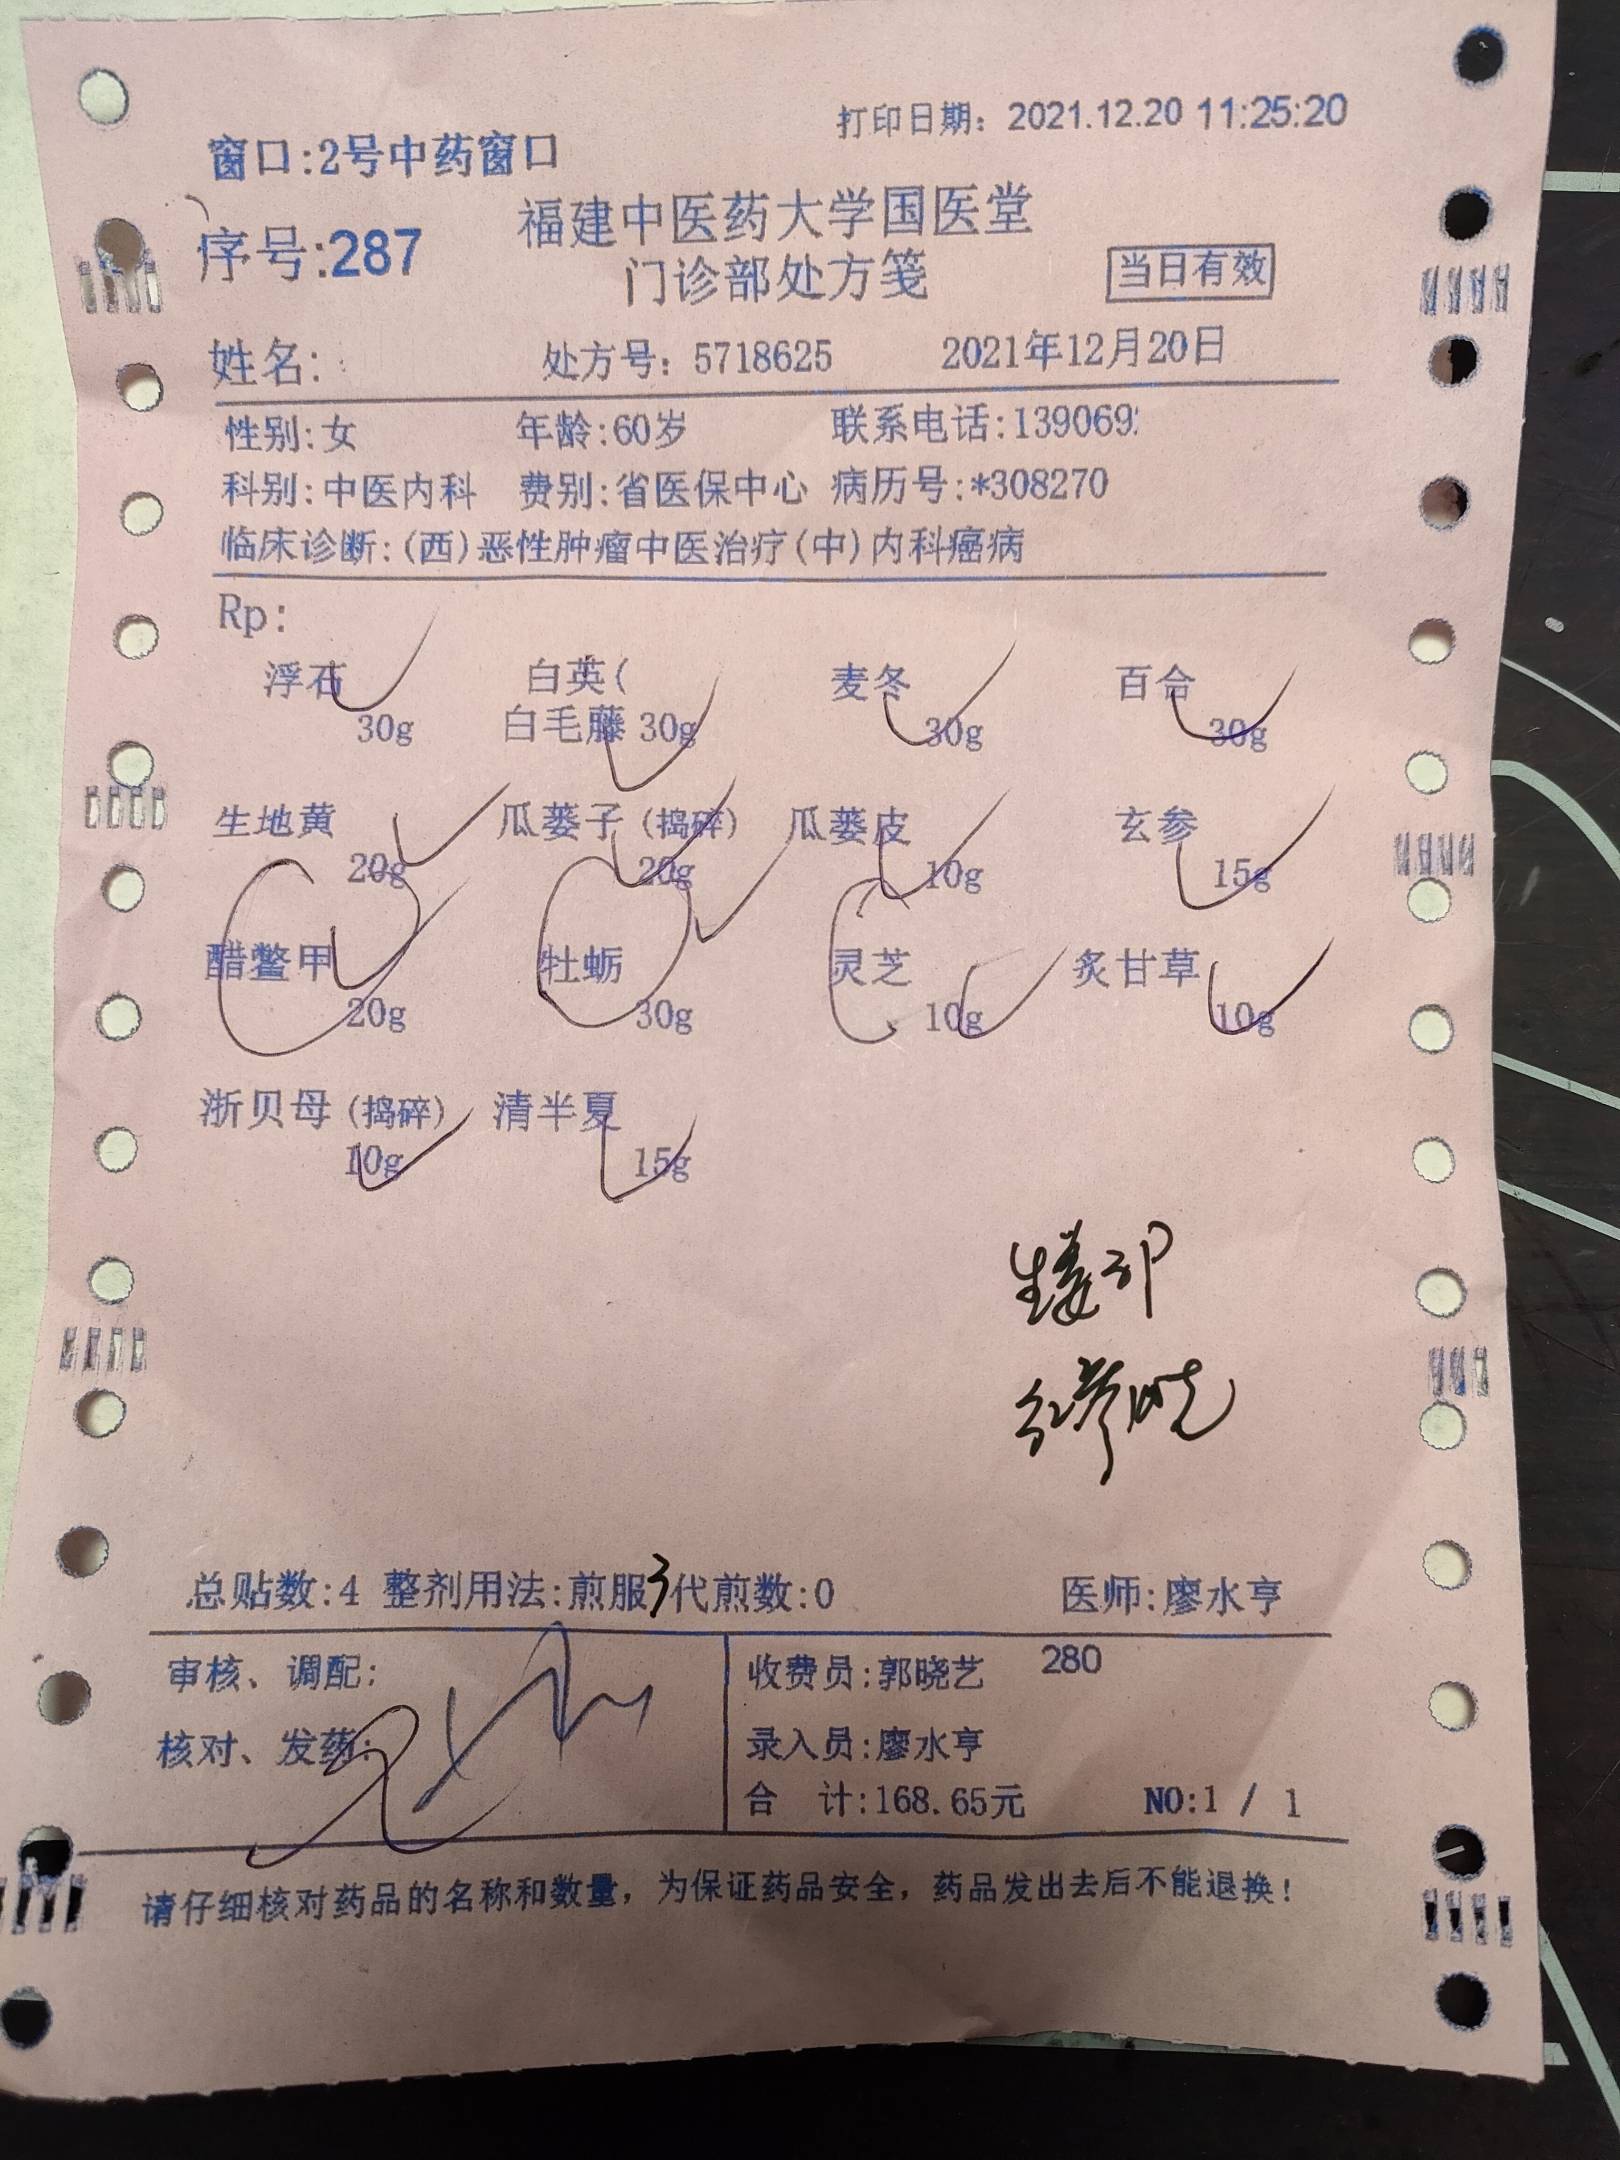 打印日期：2021.12.20 11:25:20
窗口:2号中药窗口
福建中医药大学国医堂
序号:287
门诊部处方笺
当日有效
姓名: 处方号：5718625 2021年12月20日
性别:女 年龄:60岁 联系电话:139069
科别:中医内科 费别:省医保中心 病历号:*308270
临床诊断:(西)恶性肿瘤中医治疗(中)内科癌病
Rp:
浮石 白英( 麦冬 百合
30g 白毛藤 30g 30g 30g
生地黄 瓜蒌子(捣碎) 瓜蒌皮 玄参
20g 20g 10g 15g
醋鳖甲 牡蛎 灵芝 炙甘草
20g 30g 10g 10g
浙贝母(捣碎) 清半夏
10g 15g
总贴数:4 整剂用法:煎服 代煎数:0 医师:廖水亨
审核、调配: 收费员:郭晓艺 280
核对、发药: 录入员:廖水亨
合 计:168.65元 NO:1 / 1
请仔细核对药品的名称和数量，为保证药品安全，药品发出去后不能退换！